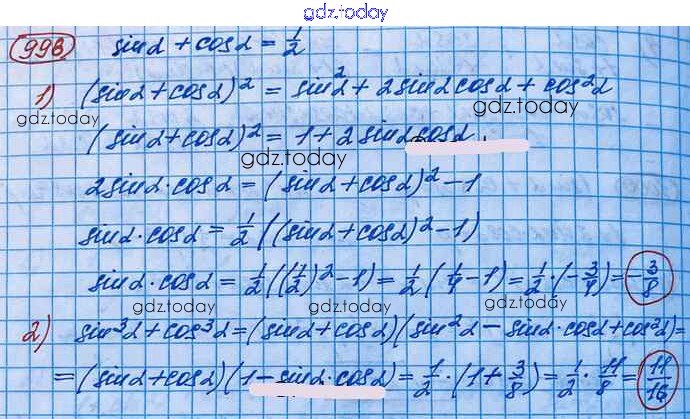 gdz.today
998 sinα + cosα = 1/2
1) (sinα + cosα)² = sin²α + 2sinα cosα + cos²α
gdz.today gdz.today
(sinα + cosα)² = 1 + 2 sinα cosα
gdz.today
2sinα · cosα = (sinα + cosα)² − 1
sinα · cosα = 1/2 ((sinα + cosα)² − 1)
sinα · cosα = 1/2 ((1/2)² − 1) = 1/2 (1/4 − 1) = 1/2 · (−3/4) = −3/8
gdz.today gdz.today gdz.today
2) sin³α + cos³α = (sinα + cosα)(sin²α − sinα · cosα + cos²α) =
= (sinα + cosα)(1 − sinα · cosα) = 1/2 · (1 + 3/8) = 1/2 · 11/8 = 11/16